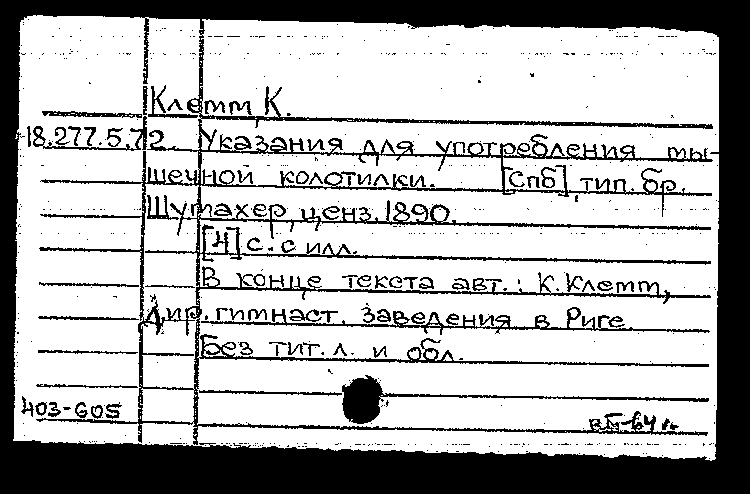 Клемм, К.
18.277.5.72. Указания для употребления мы-
шечной колотилки. [Спб], тип. бр.
Шумахер, ценз. 1890.
[4] с. с илл.
В конце текста авт.: К. Клемм,
Дир. гимнаст. заведения в Риге.
Без тит. л. и обл.
403-605